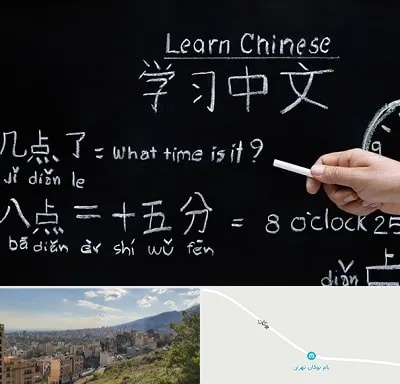 Learn Chinese
学习中文
9
几点了 = What time is it ?
Jǐ diǎn le
八点二十五分 = 8 o'clock 25
bā diǎn èr shí wǔ fēn
上
diǎn
چگان
بام بوکان تهران